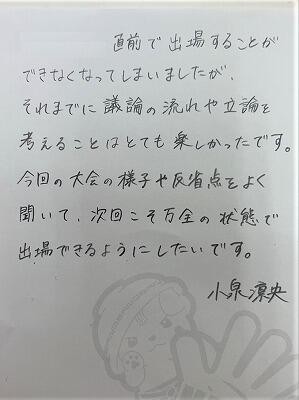 直前で出場することが
できなくなってしまいましたが、
それまでに議論の流れや立論を
考えることはとても楽しかったです。
今回の大会の様子や反省点をよく
聞いて、次回こそ万全の状態で
出場できるようにしたいです。
小泉凉央